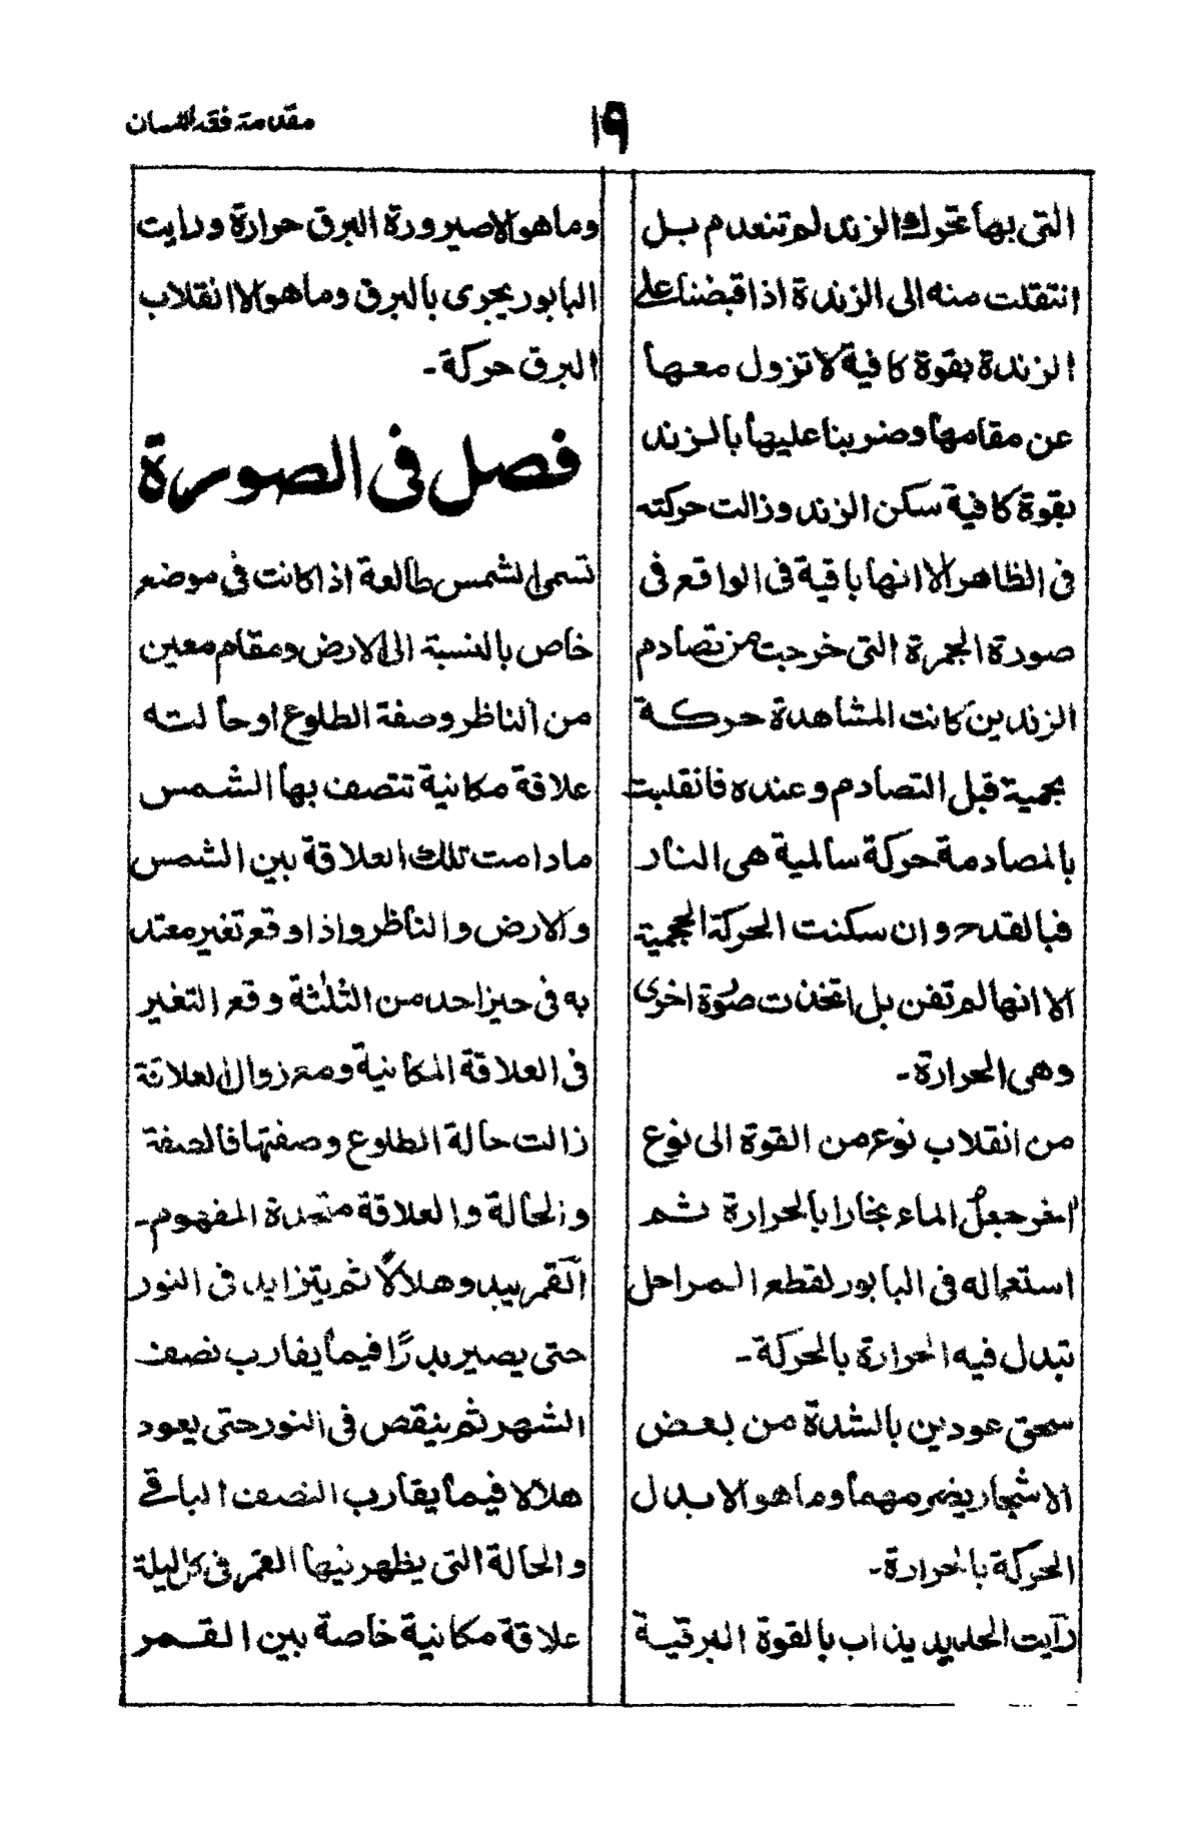 مقدمة فقه اللسان
١٩
التى بها تحرك الزند لم تنعدم بل
انتقلت منه الى الزندة اذا قبضنا على
الزندة بقوة كافية لا تزول معها
عن مقامها وضربنا عليها بالزند
بقوة كافية سكن الزند وزالت حركته
فى الظاهر الا انها باقية فى الواقع فى
صورة الجمرة التى خرجت من تصادم
الزندين كانت المشاهدة حركة
حجمية قبل التصادم وعنده فانقلبت
بالمصادمة حركة سالمية هى النار
فبالقدح وان سكنت الحركة الحجمية
الا انها لم تفن بل اتخذت صورة اخرى
وهى الحرارة۔
من انقلاب نوع من القوة الى نوع
اخر جعل الماء بخارا بالحرارة ثم
استعماله فى البابور لقطع المراحل
تبدل فيه الحرارة بالحركة۔
سحق عودين بالشدة من بعض
الاشجار يضرمهما وما هو الا بدل
الحركة بالحرارة۔
رآيت الحديد يذاب بالقوة البرقية
وما هو الا صيرورة البرق حرارة ورايت
البابور يجرى بالبرق وما هو الا انقلاب
البرق حركة۔
فصل فى الصورة
تسمى الشمس طالعة اذا كانت فى موضع
خاص بالنسبة الى الارض ومقام معين
من الناظر وصفة الطلوع او حالته
علاقة مكانية تتصف بها الشمس
ما دامت تلك العلاقة بين الشمس
والارض والناظر واذا وقع تغير معتد
به فى حيز احد من الثلثة وقع التغير
فى العلاقة المكانية ومع زوال العلاقة
زالت حالة الطلوع وصفتها فالصفة
والحالة والعلاقة متحدة المفهوم۔
القمر يبدو هلالًا ثم يتزايد فى النور
حتى يصير بدرًا فيما يقارب نصف
الشهر ثم ينقص فى النور حتى يعود
هلالا فيما يقارب النصف الباقى
والحالة التى يظهر فيها القمر فى كل ليلة
علاقة مكانية خاصة بين القمر